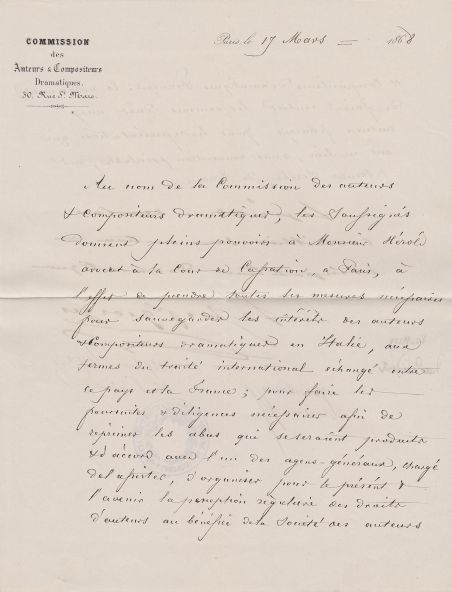 COMMISSION
des
Auteurs & Compositeurs
Dramatiques.
30, Rue St. Marc.
Paris, le 17 Mars = 1868
Au nom de la Commission des auteurs
& compositeurs dramatiques, les Soussignés
donnent pleins pouvoirs à Monsieur Hérold
avocat à la Cour de Cassation, a Paris, à
l'effet de prendre toutes les mesures nécessaires
pour sauvegarder les intérêts des auteurs
& Compositeurs dramatiques en Italie, aux
termes du traité international échangé entre
ce pays et la France ; pour faire les
poursuites & diligences nécessaires afin de
réprimer les abus qui se seraient produits
& d'accord avec l'un des agens-généraux, chargé
d'organiser pour le présent &
l'avenir la perception régulière des droits
d'auteurs au bénéfice de la Société des auteurs